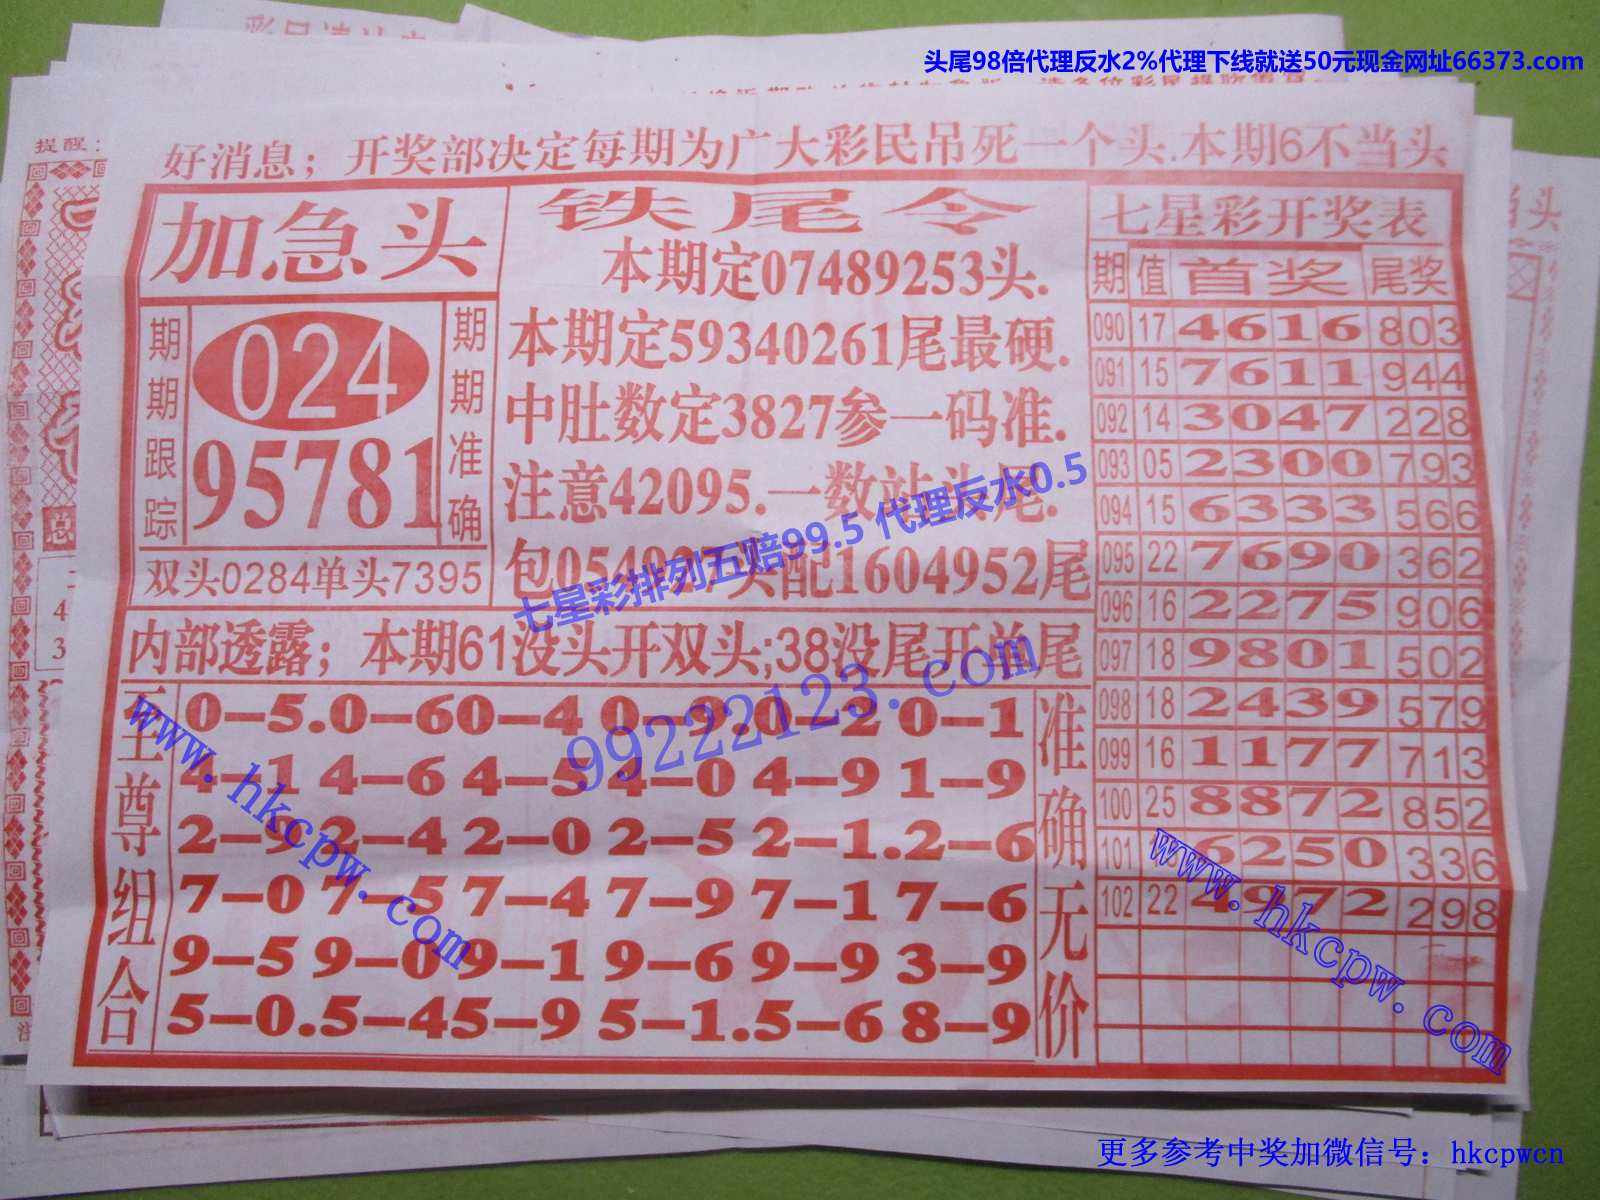 头尾98倍代理反水2%代理下线就送50元现金网址66373.com
提醒：
好消息；开奖部决定每期为广大彩民吊死一个头.本期6不当头
加急头
期期跟踪
024
95781
期期准确
双头0284单头7395
铁尾令
本期定07489253头.
本期定59340261尾最硬.
中肚数定3827参一码准.
注意42095.一数站头尾.
七星彩排列五赔99.5 代理反水0.5
配1604952尾
内部透露；本期61没头开双头;38没尾开单尾
99222123.com
至尊组合
0—5.0—60—4 0—9.0—2 0—1
4—1 4—6 4—5 4—0 4—9 1—9
2—9 2—4 2—0 2—5 2—1.2—6
7—0 7—5 7—4 7—9 7—1 7—6
9—5 9—0 9—1 9—6 9—9 3—9
5—0.5—45—9 5—1.5—6 8—9
准确无价
www.hkcpw.com
七星彩开奖表
期 值 首奖 尾奖
090 17 4616 803
091 15 7611 944
092 14 3047 228
093 05 2300 793
094 15 6333 566
095 22 7690 362
096 16 2275 906
097 18 9801 502
098 18 2439 579
099 16 1177 713
100 25 8872 852
101 6250 336
102 22 4972 298
www.hkcpw.com
更多参考中奖加微信号：hkcpwcn